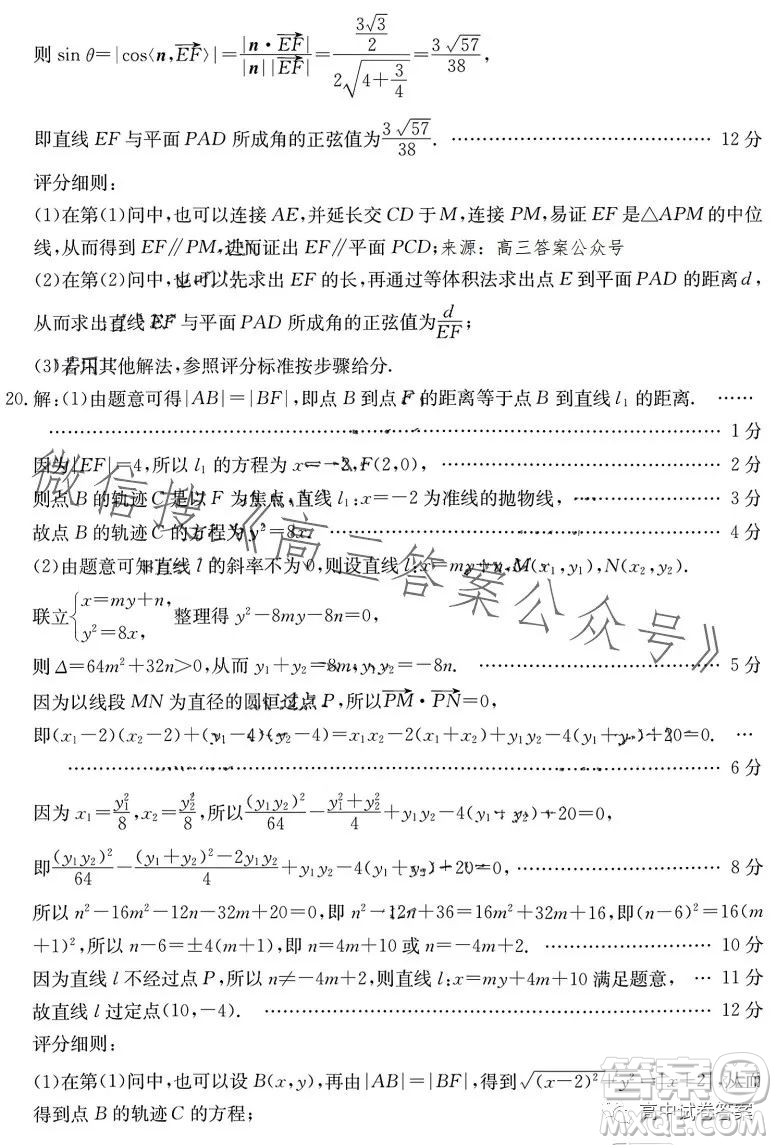 则 sin θ=|cos⟨n,EF⟩|=|n·EF|/|n||EF|=(3√3/2)/(2√(4+3/4))=3√57/38,
即直线 EF 与平面 PAD 所成角的正弦值为3√57/38. …………………………………… 12 分
评分细则:
(1)在第(1)问中,也可以连接 AE,并延长交 CD 于 M,连接 PM,易证 EF 是△APM 的中位
线,从而得到 EF∥PM,进而证出 EF∥平面 PCD;来源:高三答案公众号
(2)在第(2)问中,也可以先求出 EF 的长,再通过等体积法求出点 E 到平面 PAD 的距离 d,
从而求出直线 EF 与平面 PAD 所成角的正弦值为d/EF;
(3)若用其他解法,参照评分标准按步骤给分.
20.解:(1)由题意可得|AB|=|BF|,即点 B 到点 F 的距离等于点 B 到直线 l₁ 的距离. ……
…………………………………………………………………………………… 1 分
因为|EF|=4,所以 l₁ 的方程为 x=-2,F(2,0), …………………………………… 2 分
则点 B 的轨迹 C 是以 F 为焦点,直线 l₁:x=-2 为准线的抛物线, ………………… 3 分
故点 B 的轨迹 C 的方程为 y²=8x. ………………………………………………… 4 分
(2)由题意可知直线 l 的斜率不为 0,则设直线 l:x=my+n,M(x₁,y₁),N(x₂,y₂).
联立{x=my+n, y²=8x, 整理得 y²-8my-8n=0,
则 Δ=64m²+32n>0,从而 y₁+y₂=8m,y₁y₂=-8n. ………………………………… 5 分
因为以线段 MN 为直径的圆恒过点 P,所以PM·PN=0,
即(x₁-2)(x₂-2)+(y₁-4)(y₂-4)=x₁x₂-2(x₁+x₂)+y₁y₂-4(y₁+y₂)+20=0. …
…………………………………………………………………………………… 6 分
因为 x₁=y₁²/8,x₂=y₂²/8,所以(y₁y₂)²/64-(y₁²+y₂²)/4+y₁y₂-4(y₁+y₂)+20=0,
即(y₁y₂)²/64-((y₁+y₂)²-2y₁y₂)/4+y₁y₂-4(y₁+y₂)+20=0, ………………………… 8 分
所以 n²-16m²-12n-32m+20=0,即 n²-12n+36=16m²+32m+16,即(n-6)²=16(m
+1)²,所以 n-6=±4(m+1),即 n=4m+10 或 n=-4m+2. ……………………… 10 分
因为直线 l 不经过点 P,所以 n≠-4m+2,则直线 l:x=my+4m+10 满足题意, … 11 分
故直线 l 过定点(10,-4). ………………………………………………………… 12 分
评分细则:
(1)在第(1)问中,也可以设 B(x,y),再由|AB|=|BF|,得到√((x-2)²+y²)=|x+2|,从而
得到点 B 的轨迹 C 的方程;
微信搜《高三答案公众号》
高中试卷答案
答案圈
MXQE.COM